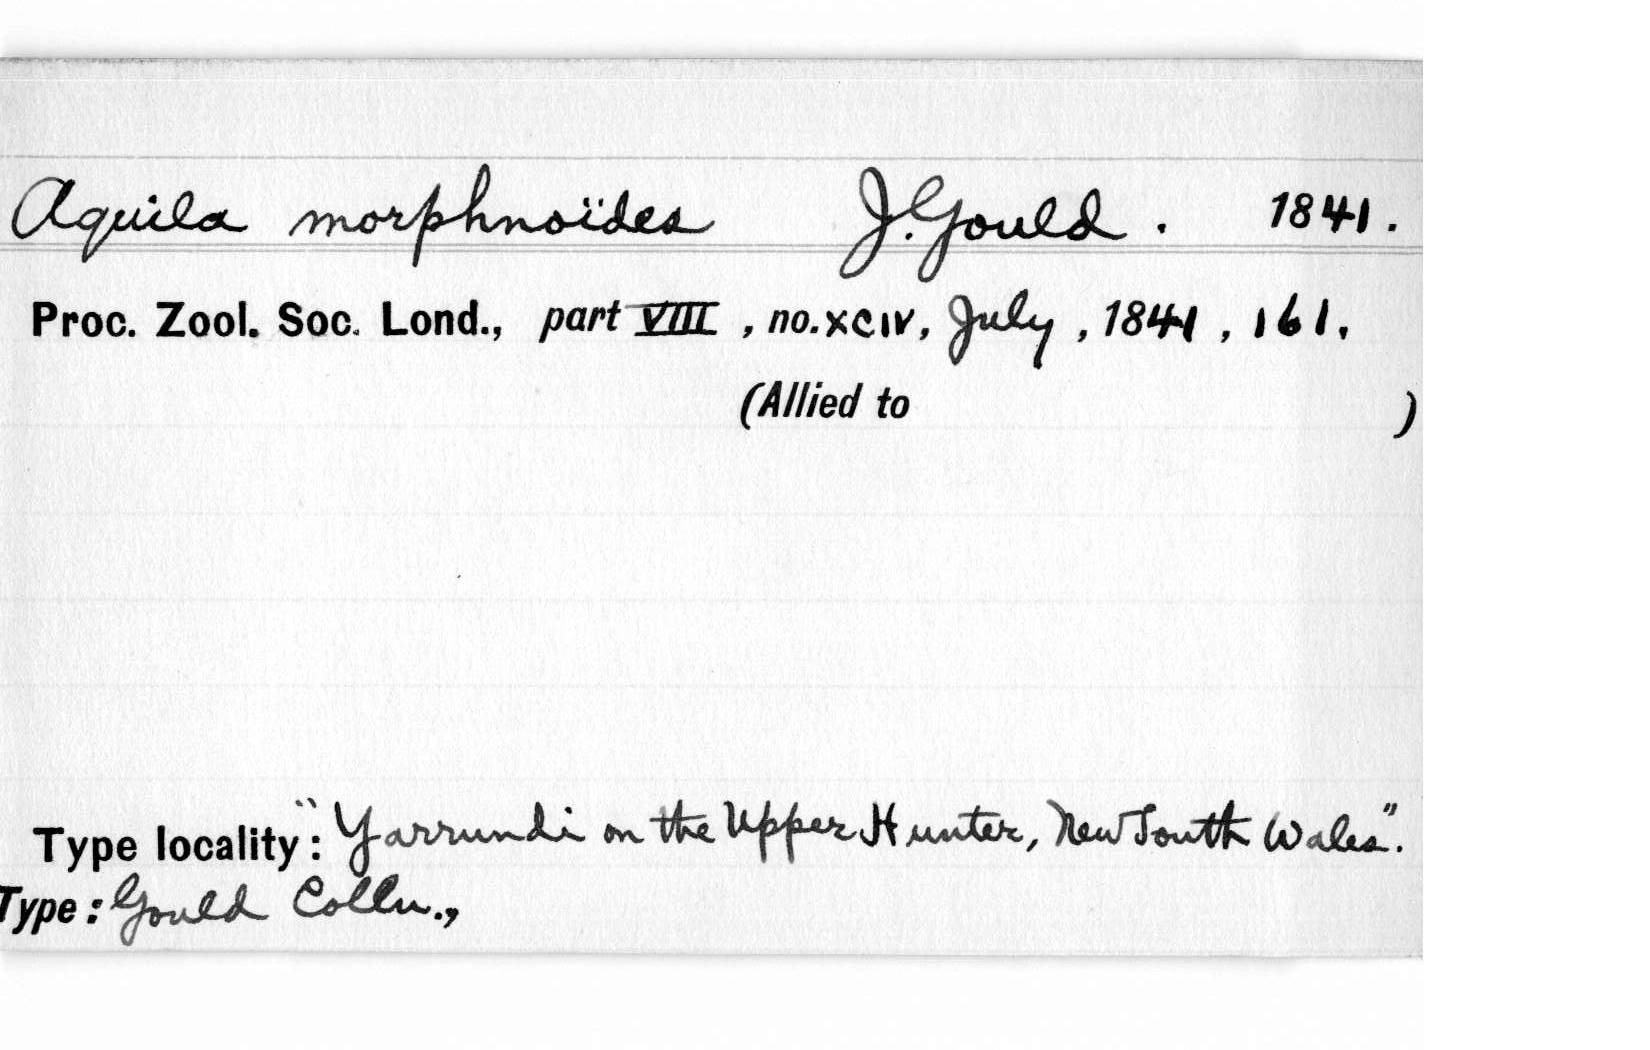 Aquila morphnoïdes J. Gould. 1841.
Proc. Zool. Soc. Lond., part VIII, no. XCIV, July, 1841, 161.
(Allied to )
Type locality: "Yarrundi on the Upper Hunter, New South Wales".
Type: Gould Colln.,